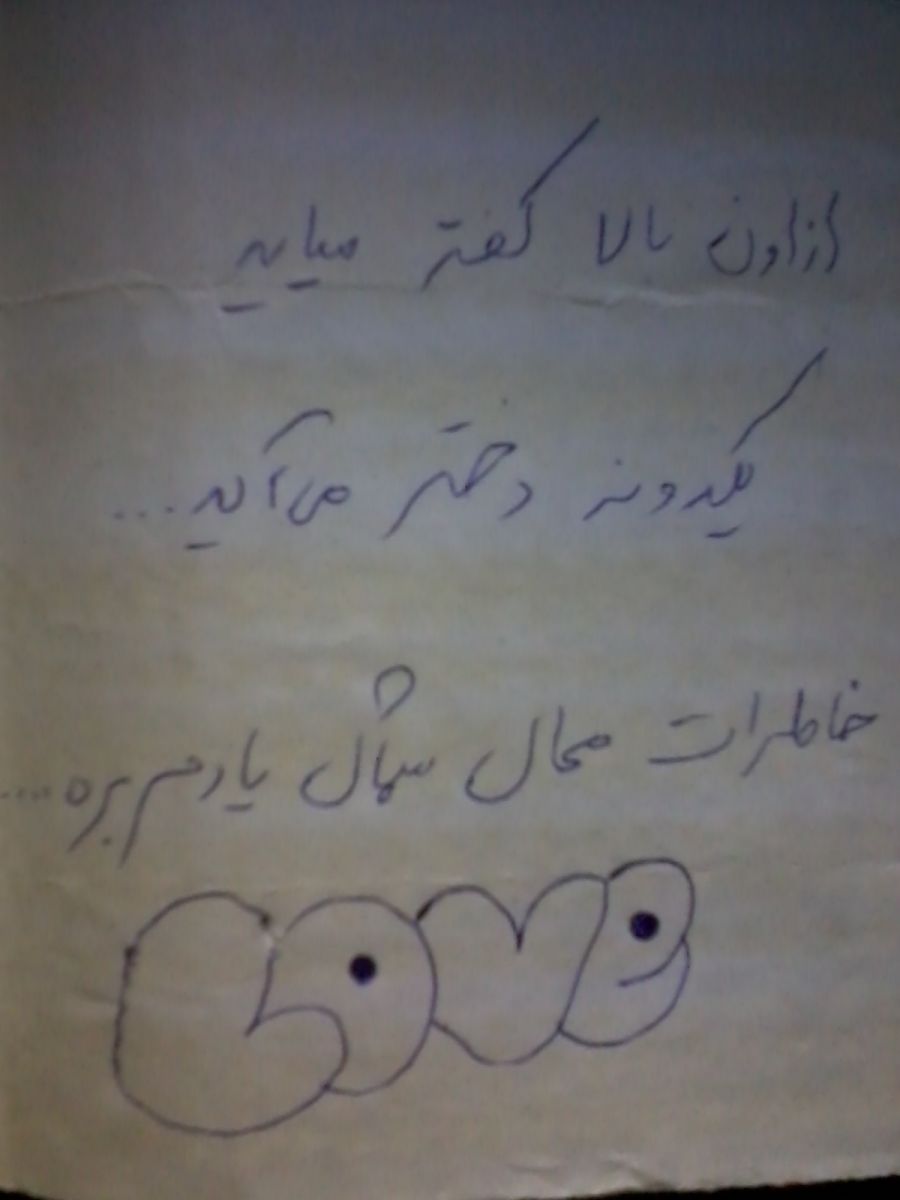 از اون بالا کفتر میایه
یکدونه دختر می‌آید...
خاطرات شمال یادم بره....
LOVE